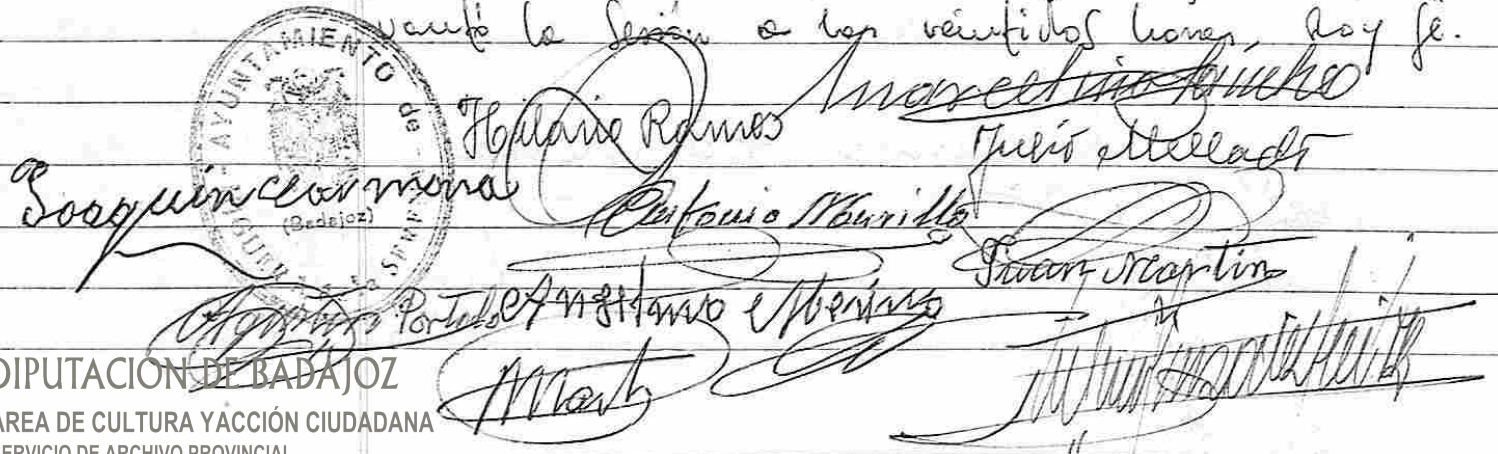 vantó la sesión a las veintidos horas, doy fé.
AYUNTAMIENTO de
(Badajoz)
Hilario Ramos
Marcelino Sancho
Julio Mellado
Joaquin Carmona
Antonio Murillo
Juan Martin
Agustin Portalo
Merino
DIPUTACIÓN DE BADAJOZ
ÁREA DE CULTURA Y ACCIÓN CIUDADANA
SERVICIO DE ARCHIVO PROVINCIAL